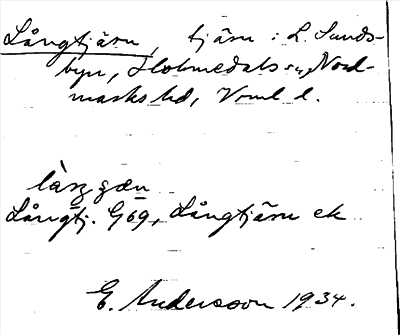 Långtjärn, tjärn i L. Sunds-
byn, Holmedals sn, Nord-
marks hd, Vrml l.
làŋgæn
Långtj. G69, Långtjärn ek
E. Andersson 1934.